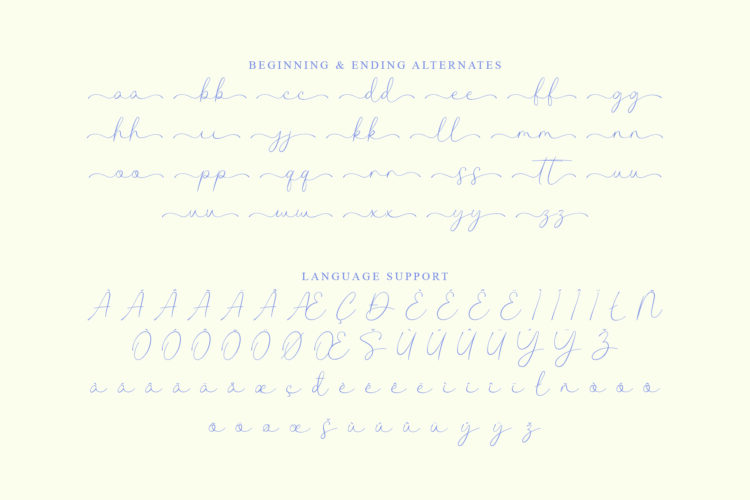 BEGINNING & ENDING ALTERNATES
aa bb cc dd ee ff gg
hh ii jj kk ll mm nn
oo pp qq rr ss tt uu
vv ww xx yy zz
LANGUAGE SUPPORT
À Á Â Ã Ä Å Æ Ç Ð È É Ê Ë Ì Í Î Ï Ł Ñ
Ò Ó Ô Õ Ö Ø Œ Š Ù Ú Û Ü Ý Ÿ Ž
à á â ã ä å æ ç đ è é ê ë ì í î ï ł ñ ò ó ô
õ ö ø œ š ù ú û ü ý ÿ ž